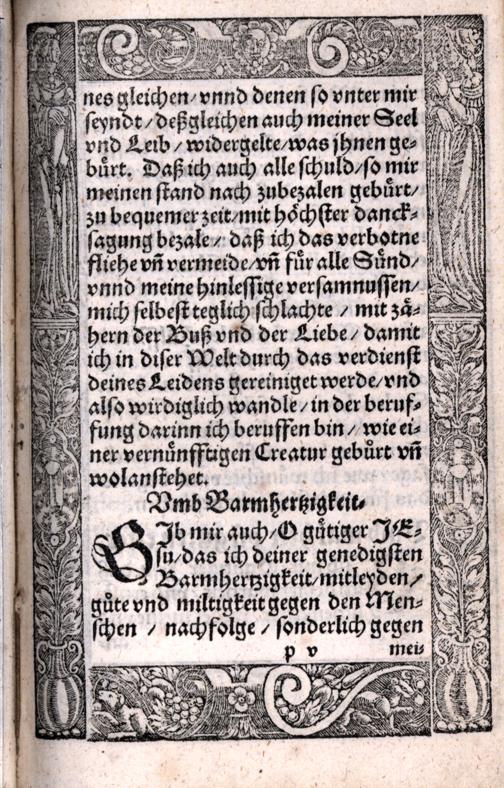 nes gleichen/ vnnd denen so vnter mir
seyndt/ deßgleichen auch meiner Seel
vnd Leib/ widergelte/ was jhnen ge-
bürt. Daß ich auch alle schuld/ so mir
meinen stand nach zubezalen gebürt/
zu bequemer zeit/ mit höchster danck-
sagung bezale/ daß ich das verbotne
fliehe vñ vermeide/ vñ für alle Sünd/
vnnd meine hinlessige versamnussen/
mich selbest teglich schlachte/ mit zä-
hern der Buß vnd der Liebe/ damit
ich in diser Welt durch das verdienst
deines Leidens gereiniget werde/ vnd
also wirdiglich wandle/ in der beruf-
fung darinn ich beruffen bin/ wie ei-
ner vernünfftigen Creatur gebürt vñ
wolanstehet.
Vmb Barmhertzigkeit.
GIb mir auch/ O gütiger JE-
su/ das ich deiner genedigsten
Barmhertzigkeit/ mitleyden/
güte vnd miltigkeit gegen den Men-
schen/ nachfolge/ sonderlich gegen
p v mei-